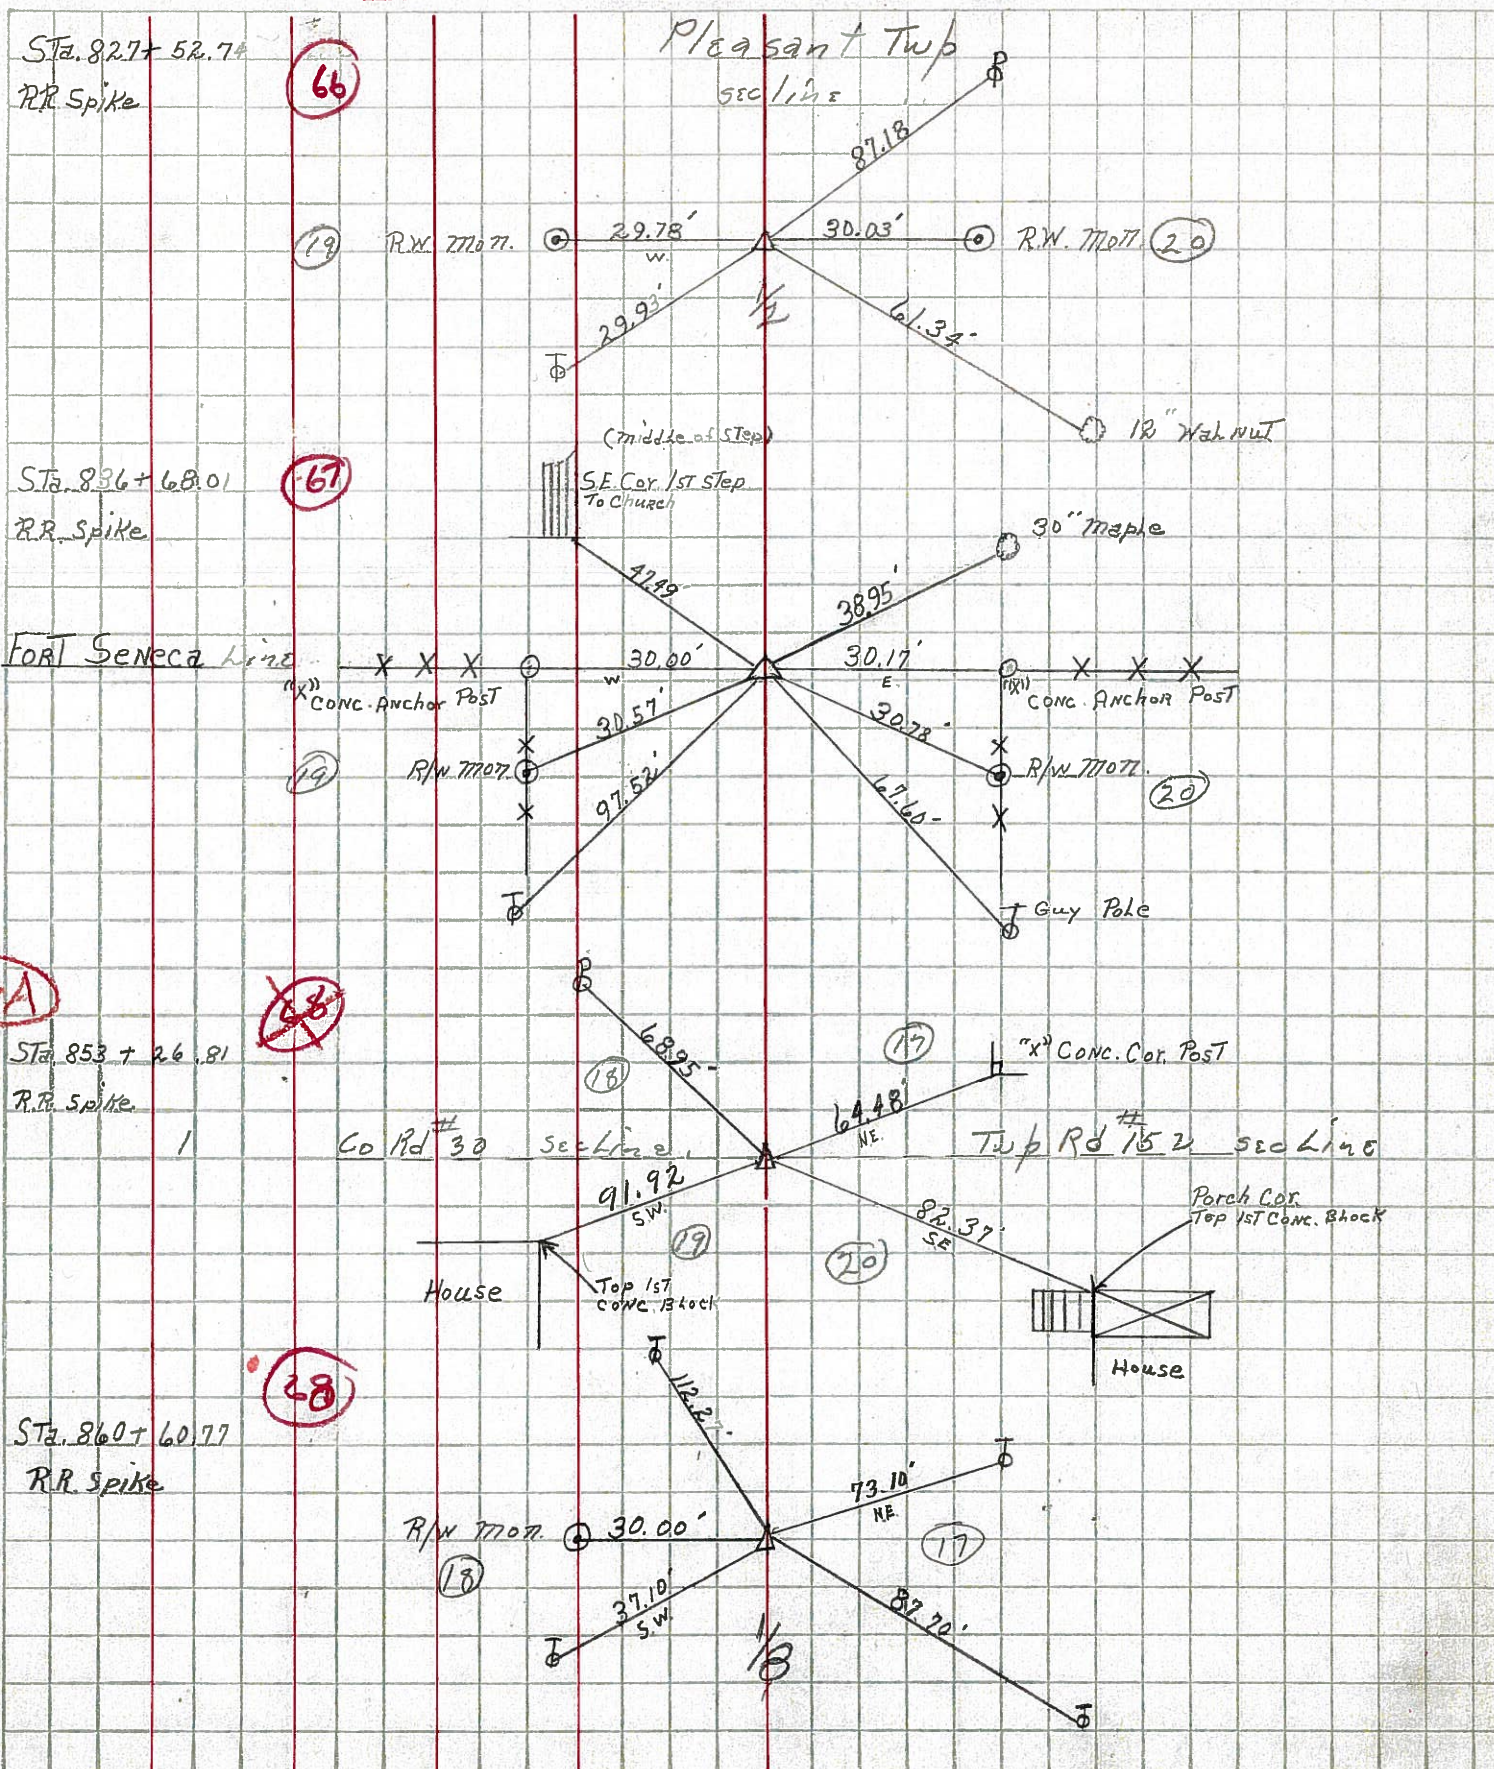 Pleasant Twp
sec line
Sta. 827+ 52.74
RR Spike
66
87.18
19
R.W. Mon.
29.78'
W.
30.03'
R.W. Mon.
20
29.93'
1/2
61.34'
12" Walnut
Sta. 836+ 68.01
RR. Spike
67
(middle of Step)
S.E. Cor. 1st Step
To Church
47.49
38.95'
30" Maple
Fort Seneca Line
X X X
30.00'
W
30.17'
E.
X X X
"X"
Conc. Anchor Post
"X"
Conc. Anchor Post
30.57'
30.78'
X
X
19
R/W Mon.
R/W Mon.
20
97.52'
67.60'
X
X
Guy Pole
A
68
Sta. 853 + 26.81
R.R. Spike
P
68.95'
18
17
"X" Conc. Cor. Post
64.48'
N.E.
1
Co Rd #30 sec Line
Twp Rd #152 sec Line
91.92
S.W.
82.37'
S.E
Porch Cor.
Top 1st Conc. Block
19
20
House
Top 1st
Conc. Block
House
68
Sta. 860+ 60.77
RR. Spike
112.27'
73.10'
N.E.
R/W Mon.
30.00'
17
18
37.10'
S.W.
87.70'